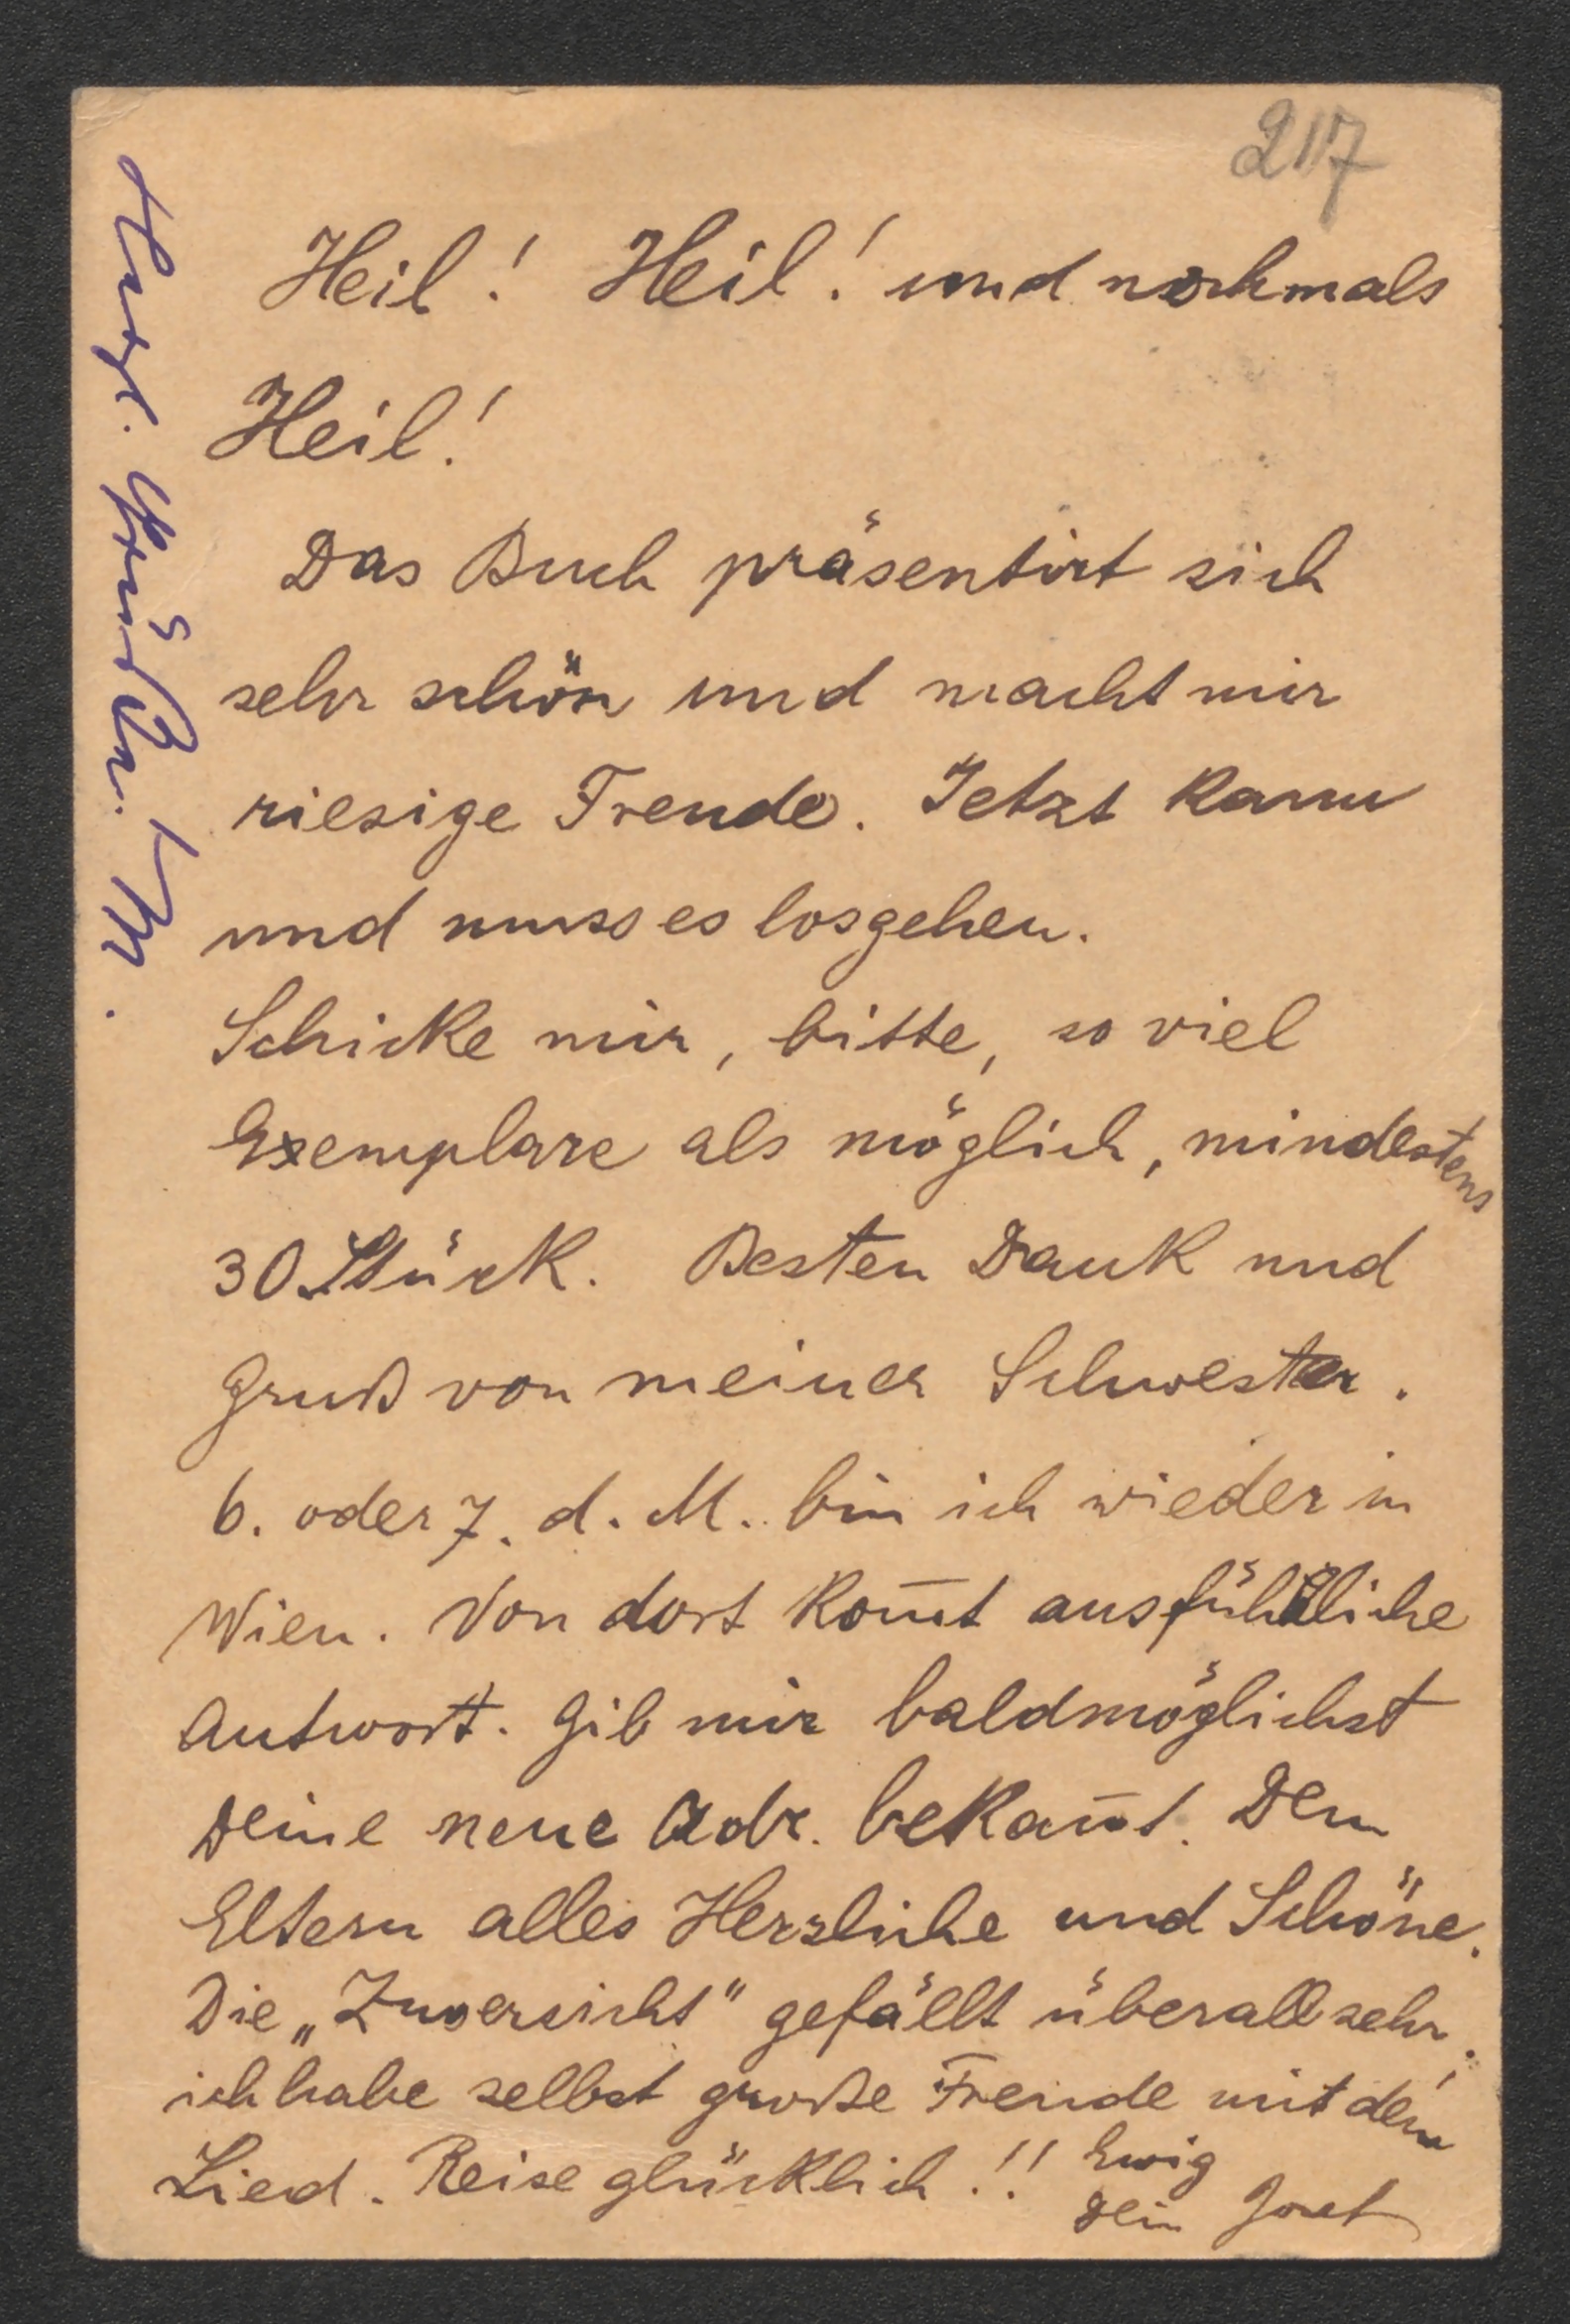 217
Heil! Heil! und nochmals
Heil!
Das Buch präsentirt sich
sehr schön und macht mir
riesige Freude. Jetzt kann
und muss es losgehen.
Schicke mir, bitte, so viel
Exemplare als möglich, mindestens
30 Stück. Besten Dank und
Gruß von meiner Schwester.
6. oder 7. d. M. bin ich wieder in
Wien. Von dort kom̅t ausführliche
Antwort. Gib mir baldmöglichst
Deine neue Adr. bekan̅t. Den
Eltern alles Herzliche und Schöne.
Die „Zuversicht" gefällt überall sehr,
ich habe selbst große Freude mit dem
Lied. Reise glücklich!! Ewig
Dein Josef
Herzl. Grüße M.